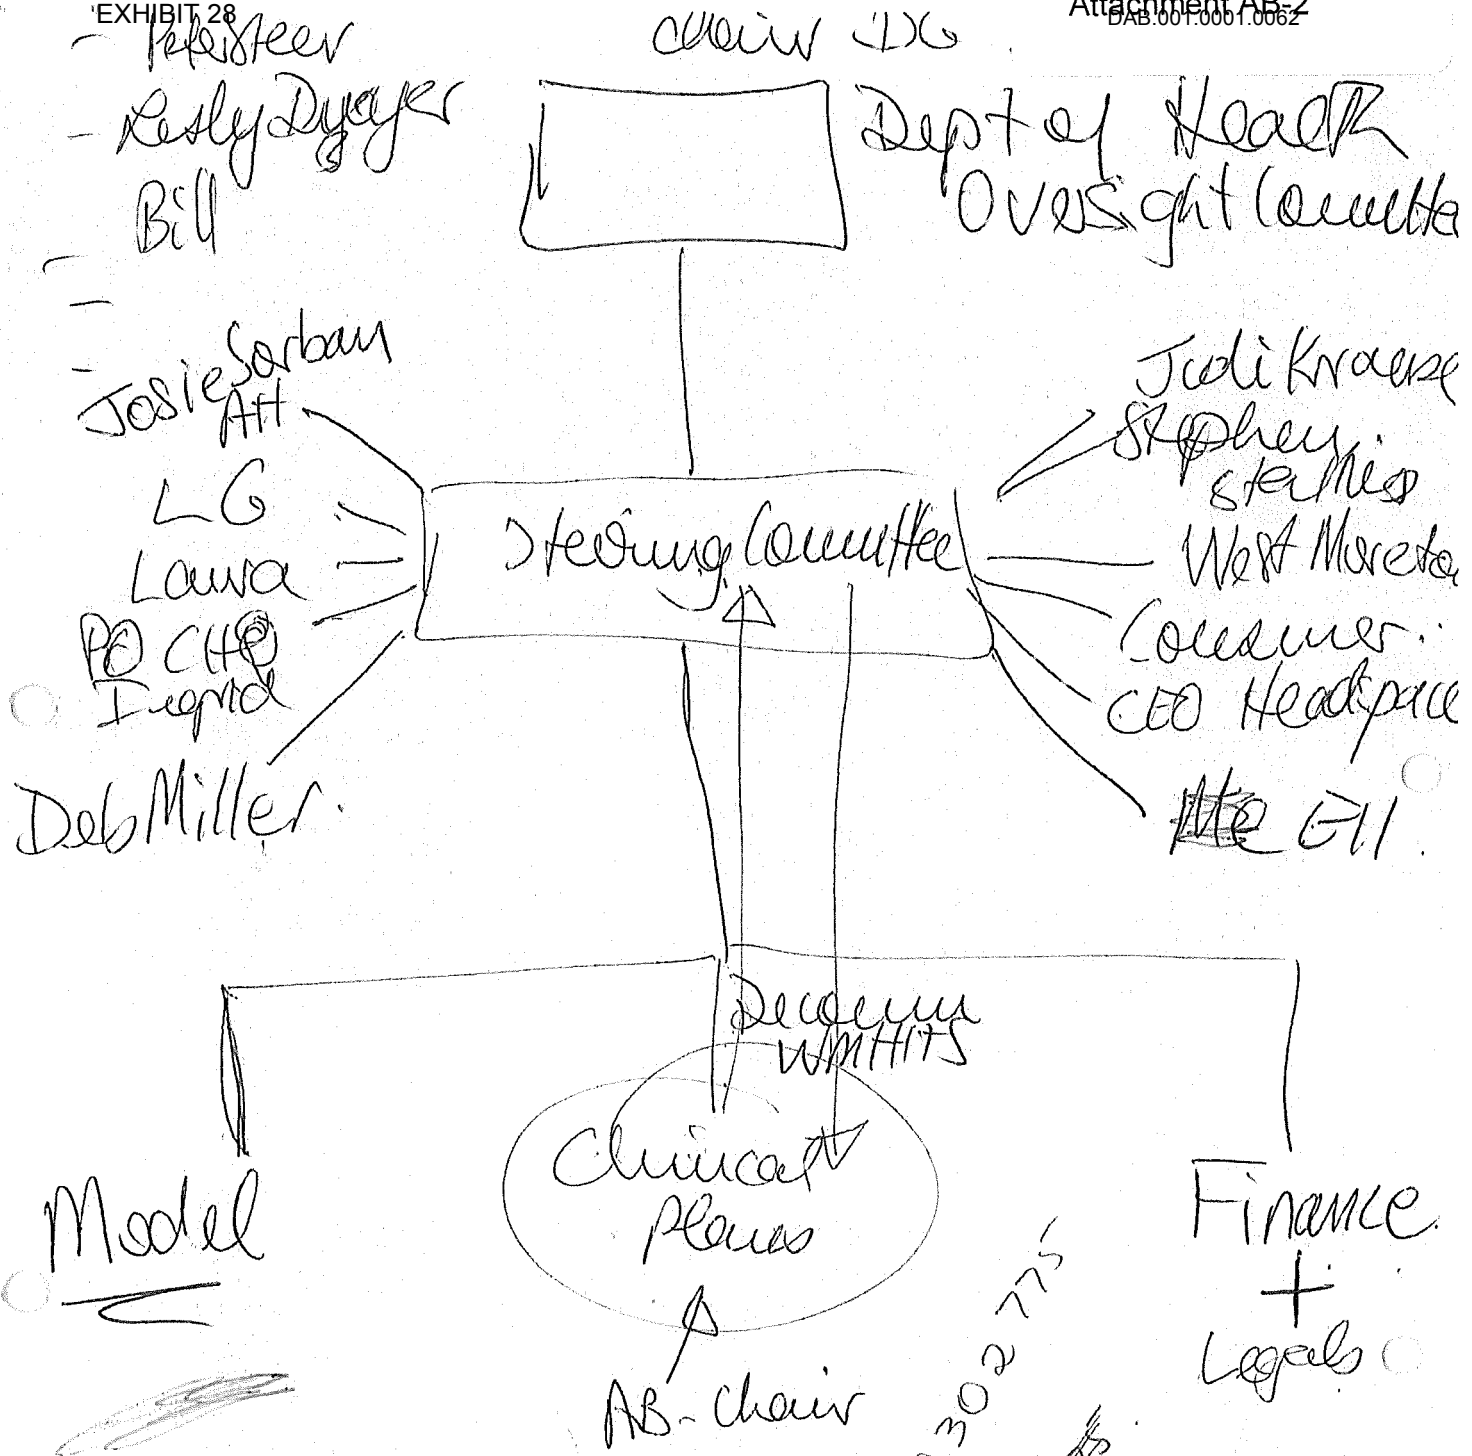 EXHIBIT 28
Attachment AB-2
DAB.001.0001.0062
- Peter Steer
- Lesly Dwyer
Bill
Chair DG
Dept of Health
Oversight Committe
Josie Sorban
AH
LG
Laura
PO CHQ
Ingrid
Deb Miller.
Steering Committee
Judi Krause
Stephen
Stathis
West Moreto
Consumer.
CEO Headspace
Me EH.
Decomm
WMHHS
Model
Clinical
Plans
Finance
+
Legals
AB-Chair
302775